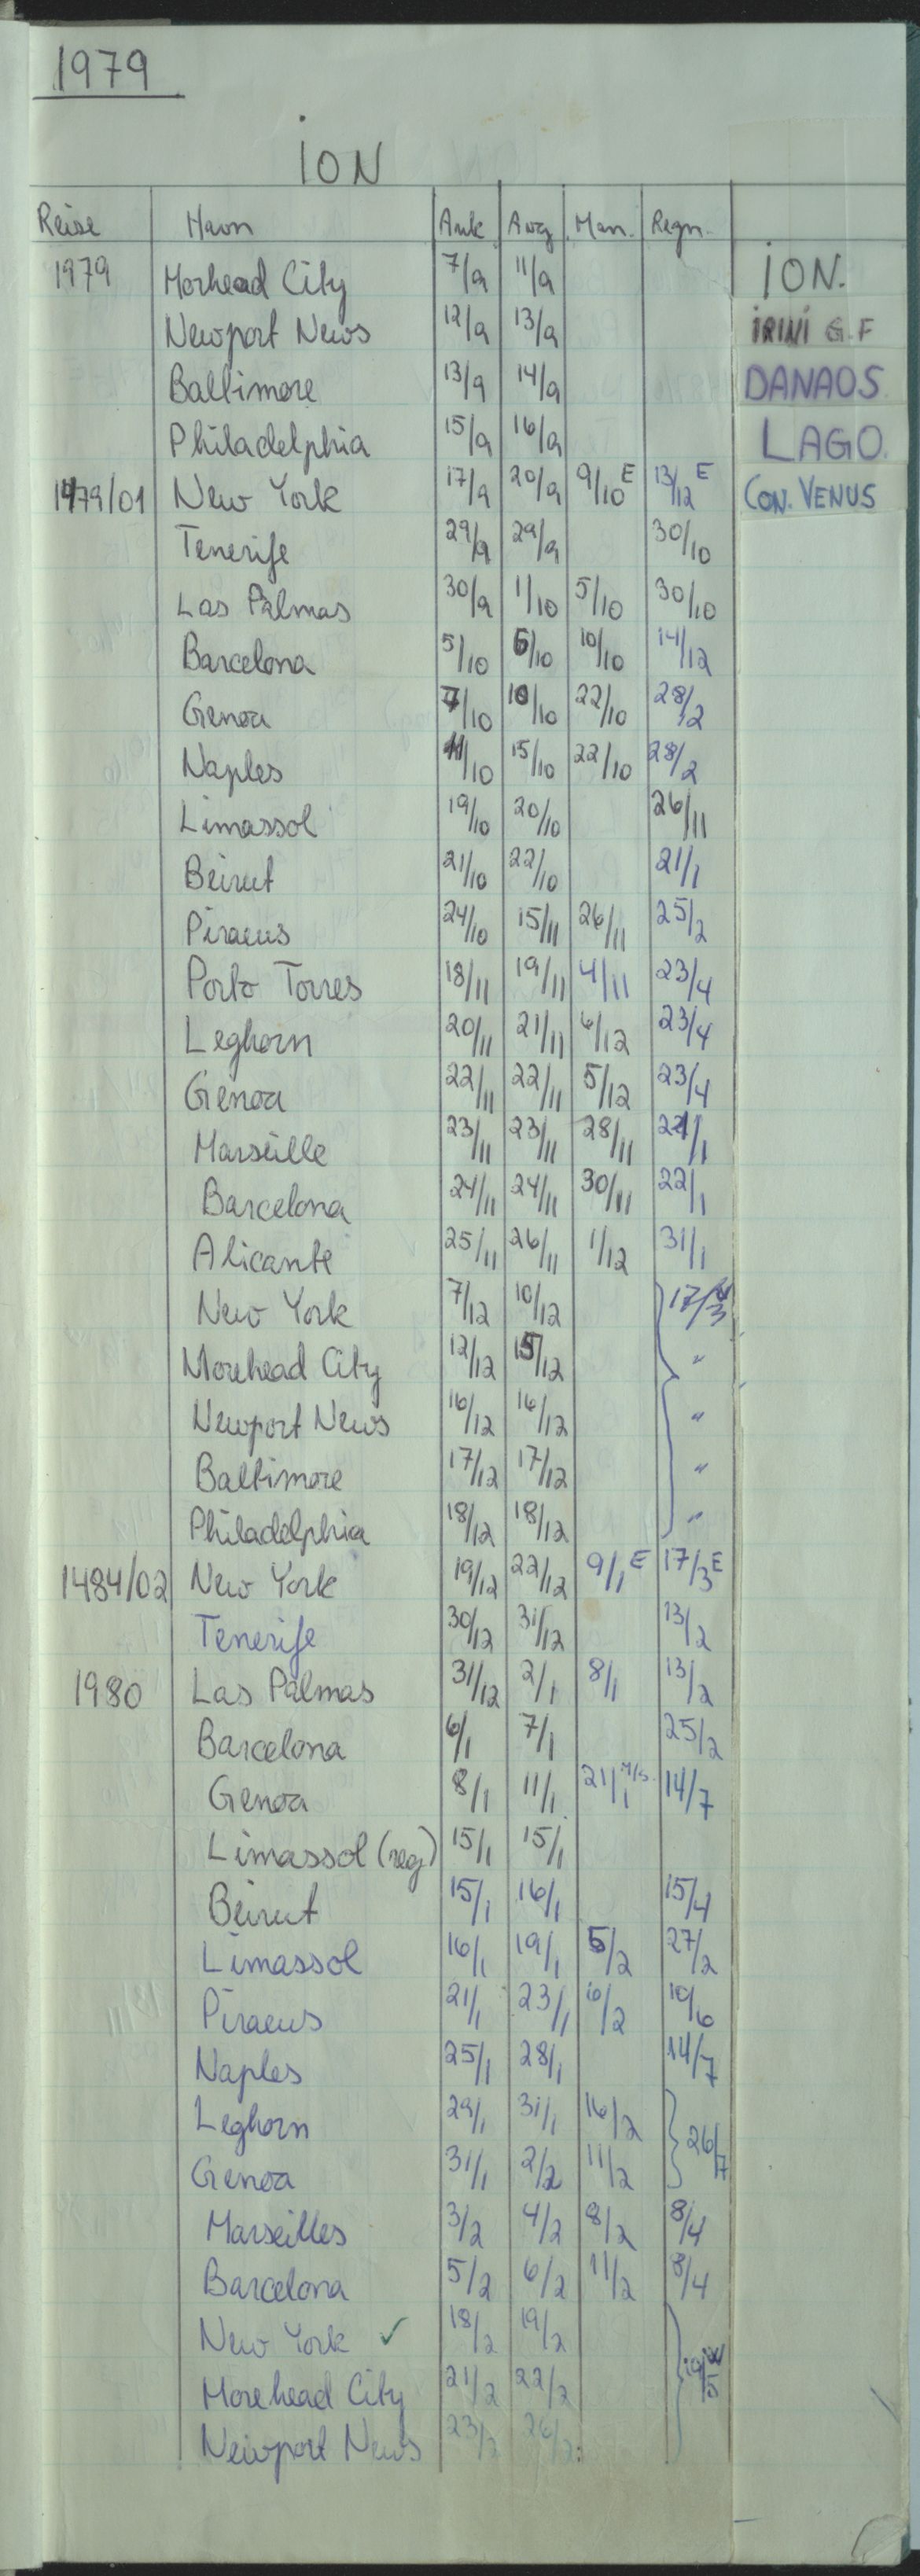 1979
ION
Reise Havn Ank Avg. Man. Regn.
1979 Morhead City 7/9 11/9 ION.
Newport News 12/9 13/9 IRINI G.F
Baltimore 13/9 14/9 DANAOS
Philadelphia 15/9 16/9 LAGO.
1479/01 New York 17/9 20/9 9/10 E 13/12 E CON. VENUS
Tenerife 29/9 29/9 30/10
Las Palmas 30/9 1/10 5/10 30/10
Barcelona 5/10 6/10 10/10 14/12
Genoa 7/10 10/10 22/10 28/2
Naples 11/10 15/10 22/10 28/2
Limassol 19/10 20/10 26/11
Beirut 21/10 22/10 21/1
Piraeus 24/10 15/11 26/11 25/2
Porto Torres 18/11 19/11 4/11 23/4
Leghorn 20/11 21/11 6/12 23/4
Genoa 22/11 22/11 5/12 23/4
Marseille 23/11 23/11 28/11
Barcelona 24/11 24/11 30/11 22/1
Alicante 25/11 26/11 1/12 31/1
New York 7/12 10/12 17/3
Morehead City 12/12 15/12 "
Newport News 16/12 16/12 "
Baltimore 17/12 17/12 "
Philadelphia 18/12 18/12 "
1484/02 New York 19/12 22/12 9/1 E 17/3 E
Tenerife 30/12 31/12 13/2
1980 Las Palmas 31/12 2/1 8/1 13/2
Barcelona 6/1 7/1 25/2
Genoa 8/1 11/1 21/1 14/7
Limassol (reg) 15/1 15/1
Beirut 15/1 16/1 15/4
Limassol 16/1 19/1 5/2 27/2
Piraeus 21/1 23/1 10/2 10/6
Naples 25/1 28/1 14/7
Leghorn 29/1 31/1 16/2 26/7
Genoa 31/1 2/2 11/2
Marseilles 3/2 4/2 8/2 8/4
Barcelona 5/2 6/2 11/2 8/4
New York ✓ 18/2 19/2
Morehead City 21/2 22/2
Newport News 23/2 26/2